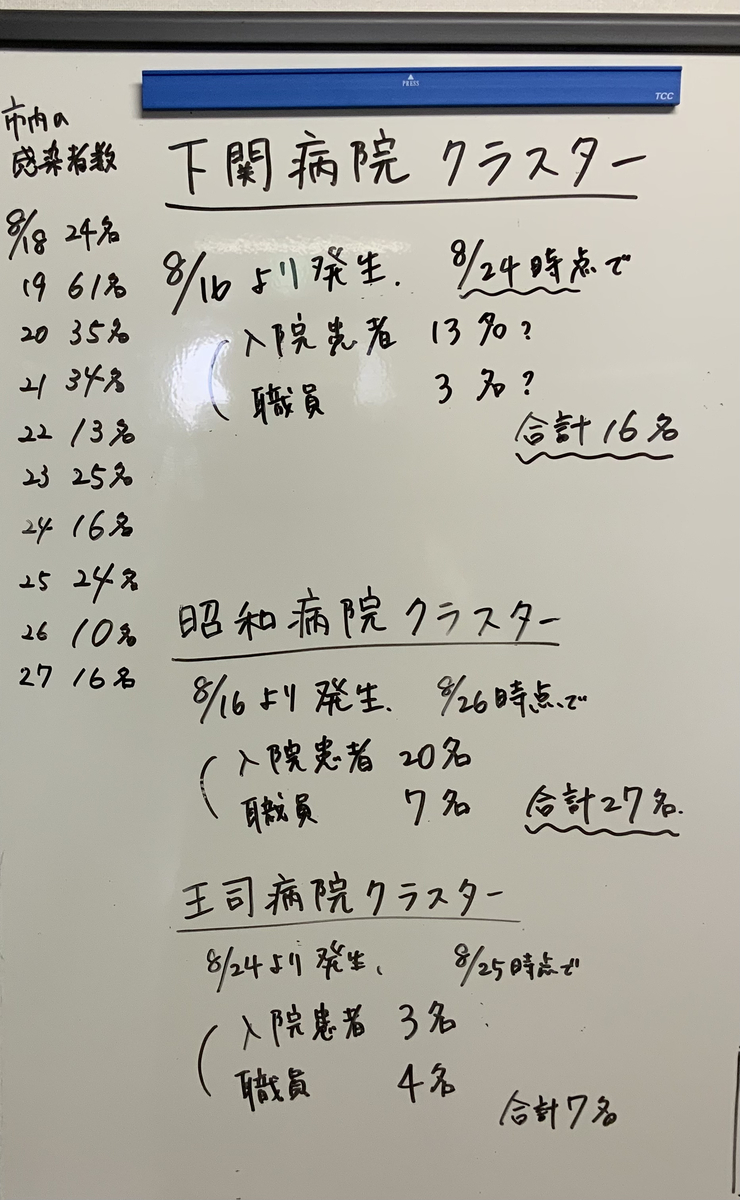 PRESS
TCC
市内の
感染者数
8/18 24名
19 61名
20 35名
21 34名
22 13名
23 25名
24 16名
25 24名
26 10名
27 16名
下関病院 クラスター
8/16 より発生. 8/24時点で
入院患者 13名?
職員 3名?
合計16名
昭和病院クラスター
8/16より発生. 8/26時点で
入院患者 20名
職員 7名 合計27名.
王司病院クラスター
8/24より発生、 8/25時点で
入院患者 3名
職員 4名
合計7名